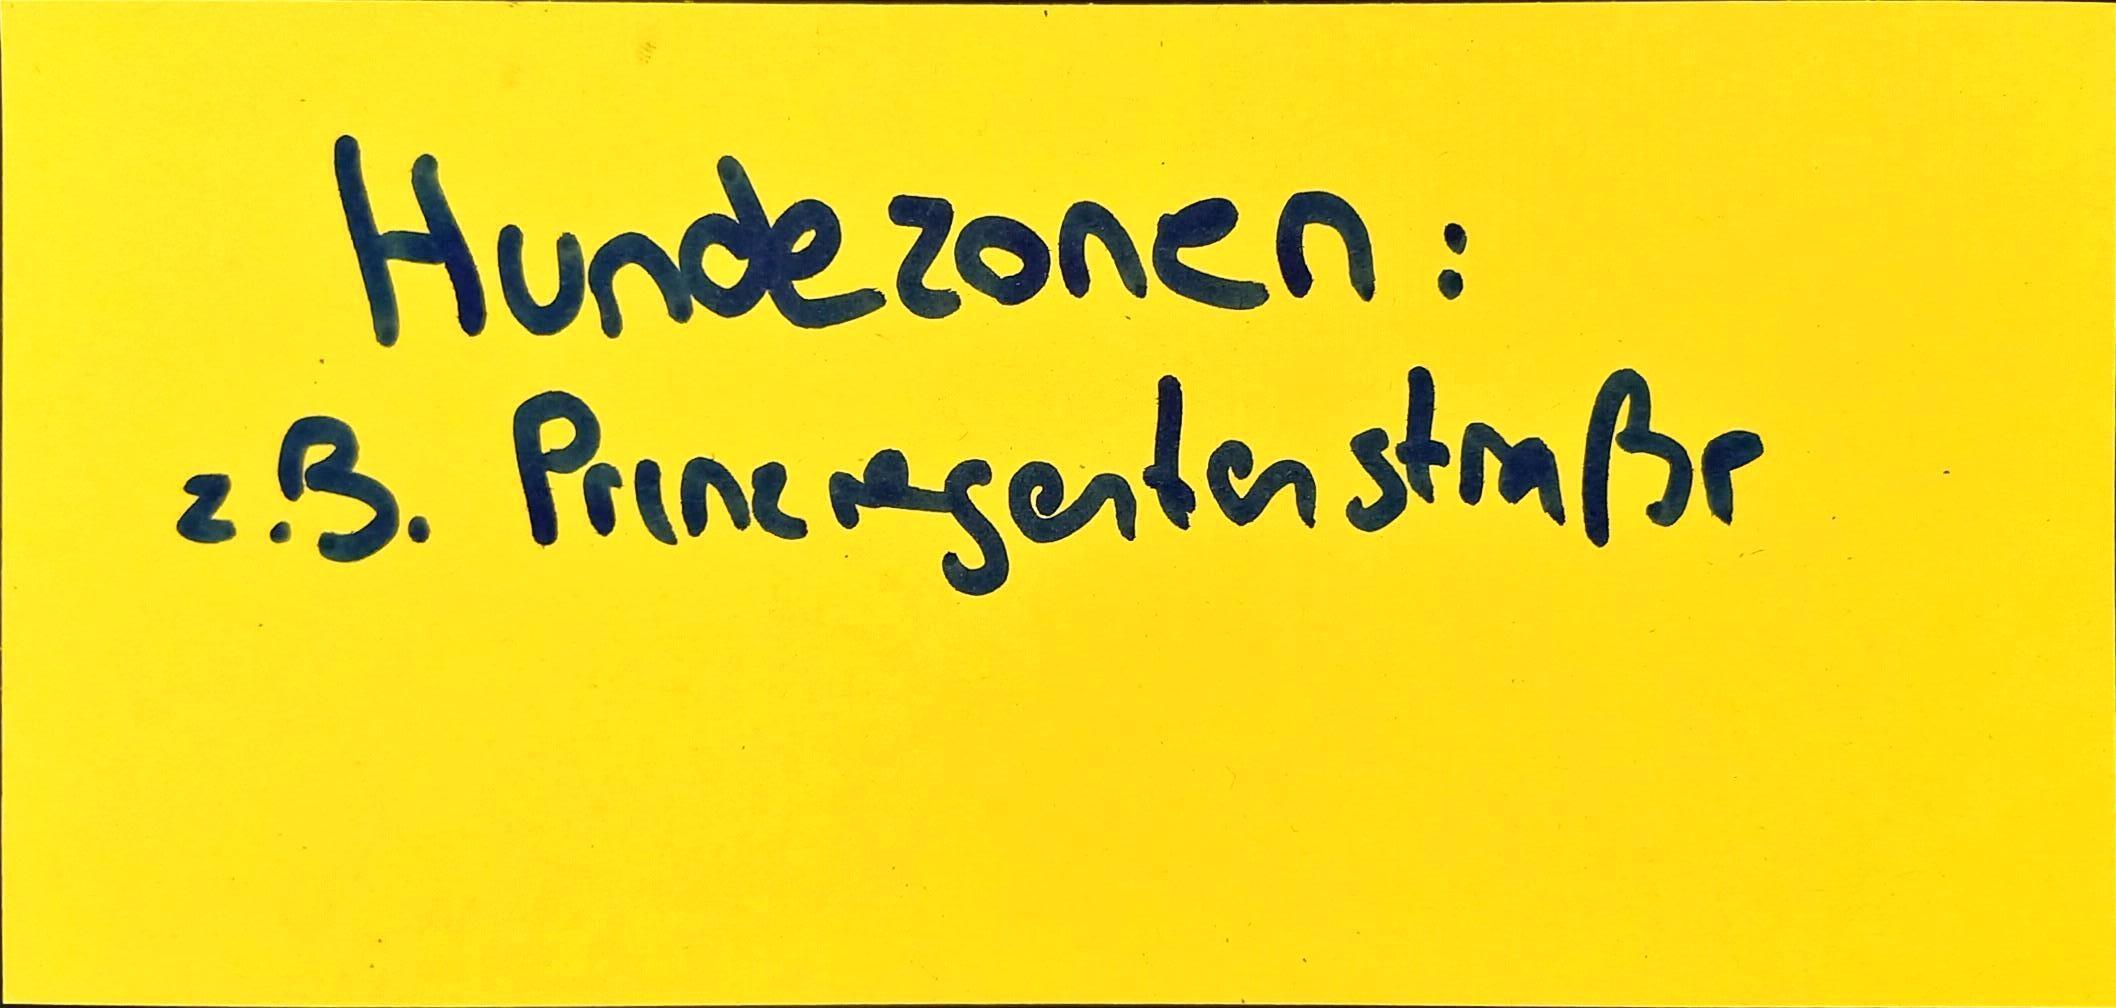 Hundezonen:
z.B. Prinzregentenstraße